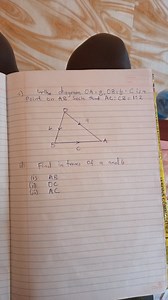 In the diagram OA=a, OB=b. C is a
Point on AB such that AC:CB=
O
a
b
B
C
A
Find in terms of a and b
AB
OC
AC